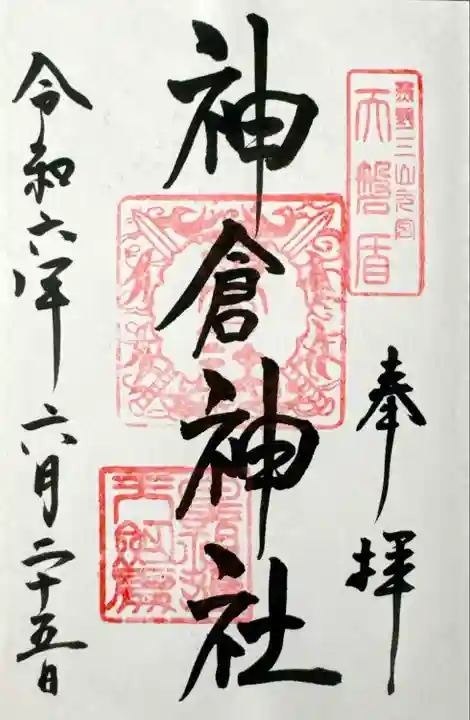 奉拝
熊野三山元宮
天磐盾
神倉神社
令和六年六月二十五日